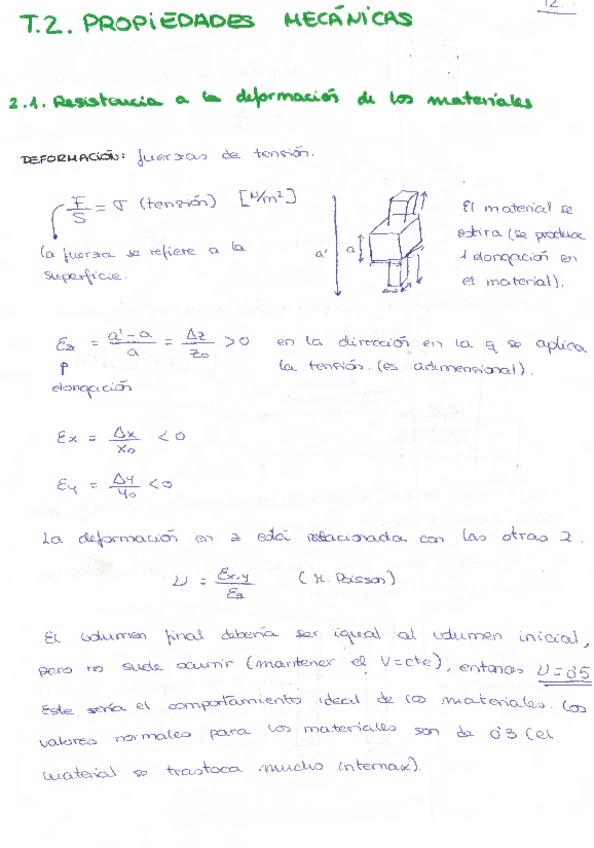 12.
T.2. PROPIEDADES MECÁNICAS
2.1. Resistencia a la deformación de los materiales
DEFORMACIÓN: fuerzas de tensión.
F/S = σ (tensión) [N/m²]
la fuerza se refiere a la
superficie.
a'
a
El material se
estira (se produce
1 elongación en
el material).
Ez = a'-a/a = Δz/z0 > 0 en la dirección en la q se aplica
la tensión. (es adimensional).
elongación
Ex = Δx/x0 < 0
Ey = Δy/y0 < 0
La deformación en z está relacionada con las otras 2.
υ = Ex,y/Ez (M. Poisson)
El volumen final debería ser igual al volumen inicial,
pero no suele ocurrir (mantener el V=cte), entonces υ=0'5
Este sería el comportamiento ideal de los materiales. Los
valores normales para los materiales son de 0'3 (el
material se trastoca mucho internax).